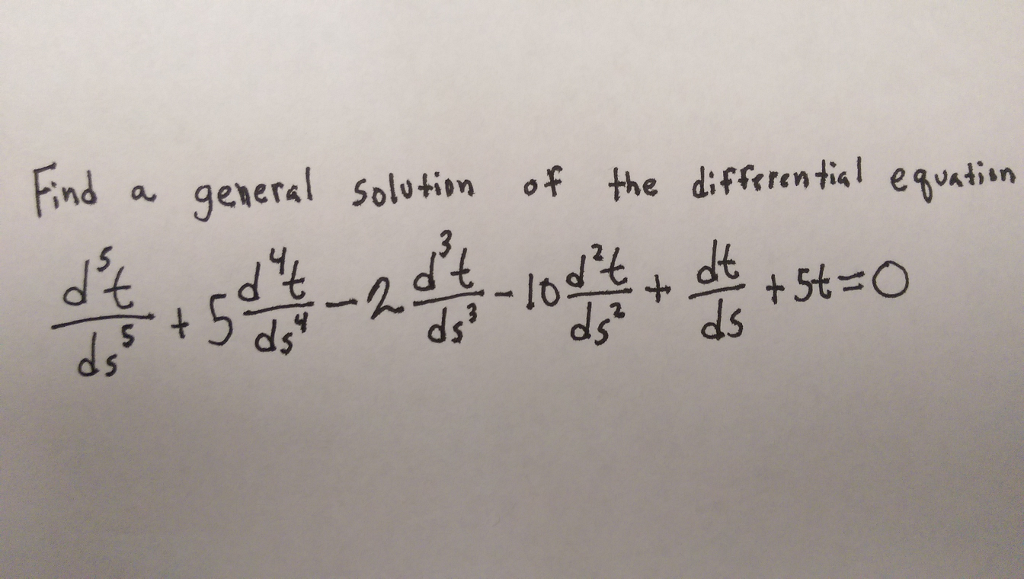 Find a general solution of the differential equation
d⁵t/ds⁵ + 5 d⁴t/ds⁴ - 2 d³t/ds³ - 10 d²t/ds² + dt/ds + 5t = 0